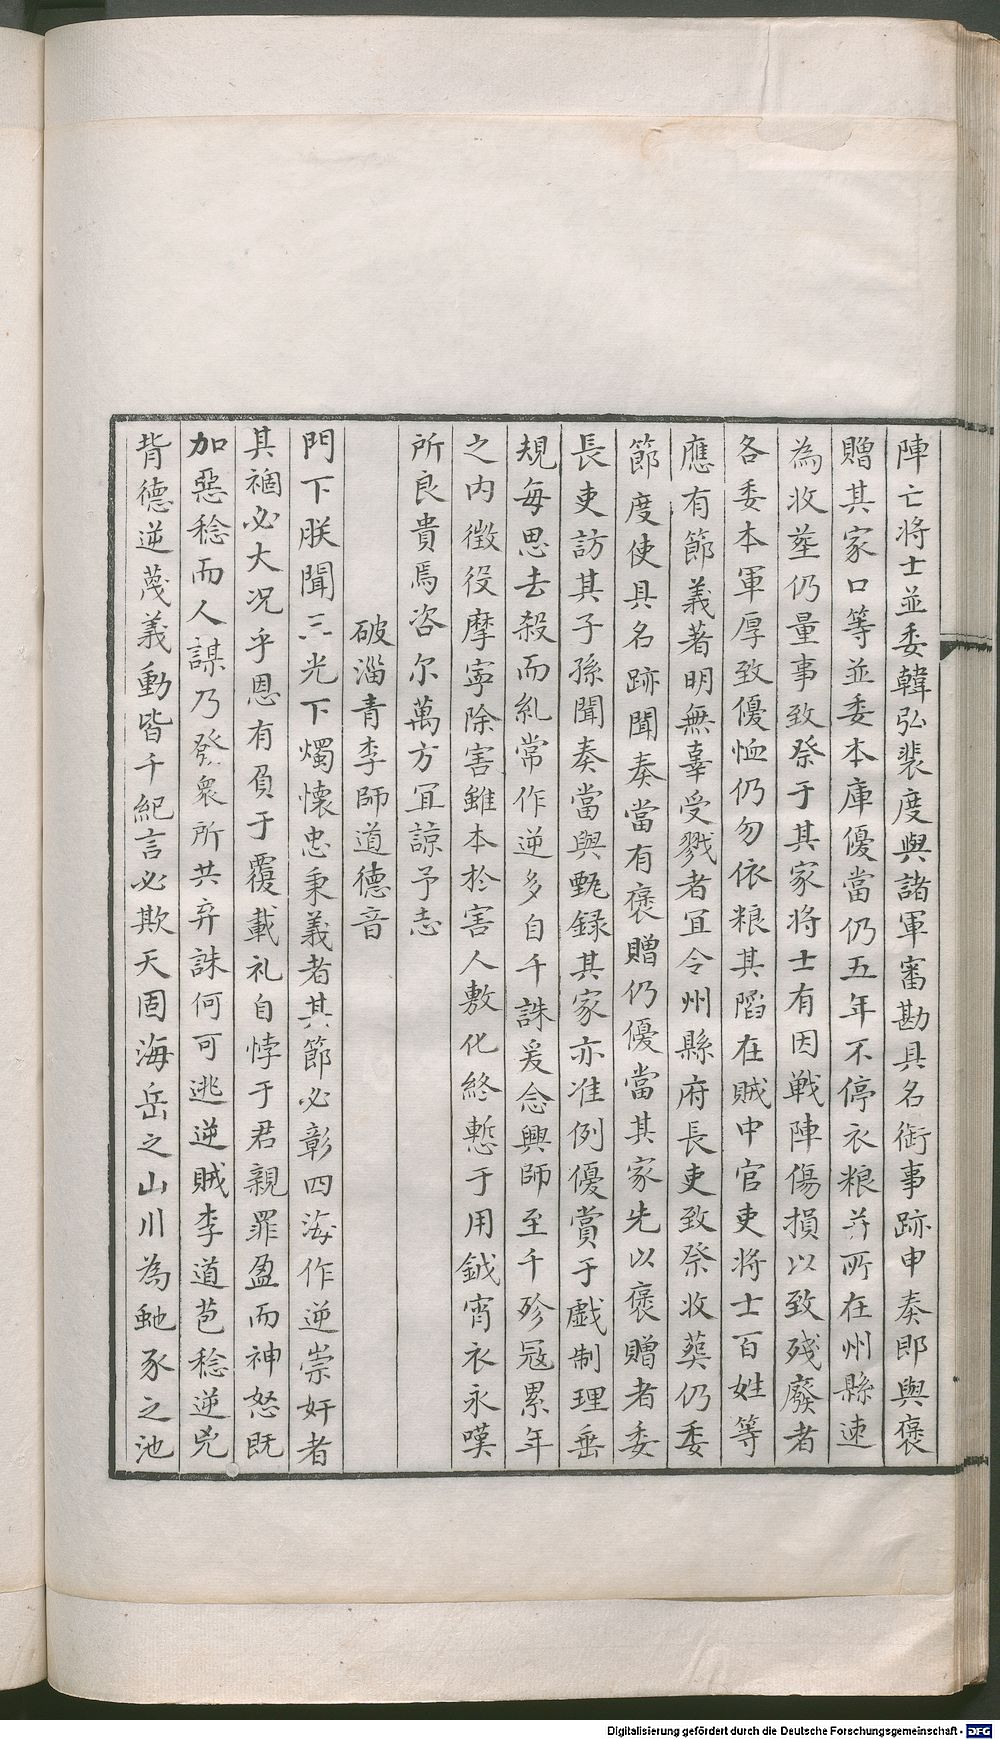 陣亡將士並委韓弘裴度與諸軍審勘具名銜事跡申奏即與褒
贈其家口等並委本庫優當仍五年不停衣粮并所在州縣速
為收塟仍量事致祭于其家將士有因戦陣傷損以致殘廢者
各委本軍厚致優恤仍勿依粮其陷在賊中官吏將士百姓等
應有節義著明無辜受戮者冝令州縣府長吏致祭收葬仍委
節度使具名跡聞奏當有褒贈仍優當其家先以褒贈者委
長吏訪其子孫聞奏當與甄録其家亦准例優賞于戯制理垂
規每思去殺而糺常作逆多自千誅爰念興師至千殄冦累年
之内徵役摩寧除害雖本於害人敷化終慙于用鉞宵衣永嘆
所良貴焉咨尔萬方冝諒予志
破淄青李師道德音
門下朕聞三光下燭懷忠秉義者其節必彰四海作逆崇奸者
其禍必大况乎恩有負于覆載礼自悖于君親罪盈而神怒既
加惡稔而人謀乃發衆所共弃誅何可逃逆賊李道苞稔逆兇
背德逆蔑義動皆千紀言必欺天固海岳之山川為虵豕之池
Digitalisierung gefördert durch die Deutsche Forschungsgemeinschaft - DFG